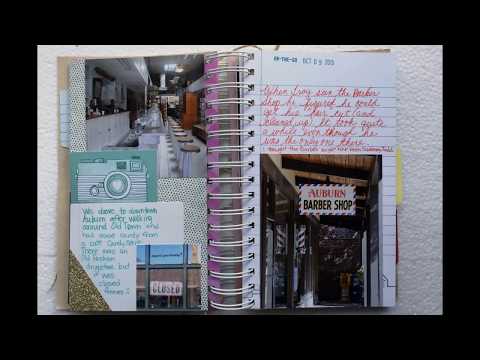 We drove to downtown
Auburn after walking
around Old Town and
had some candy from
a cute Candy Store.
There was an
old fashion
drugstore but
it was
closed
CLOSED
ON-THE-GO OCT 09 2015
When Troy saw the Barber
Shop he figured he could
get his hair cut (and
cleaned up). It took quite
a while even though he
was the only one there.
AUBURN
BARBER SHOP